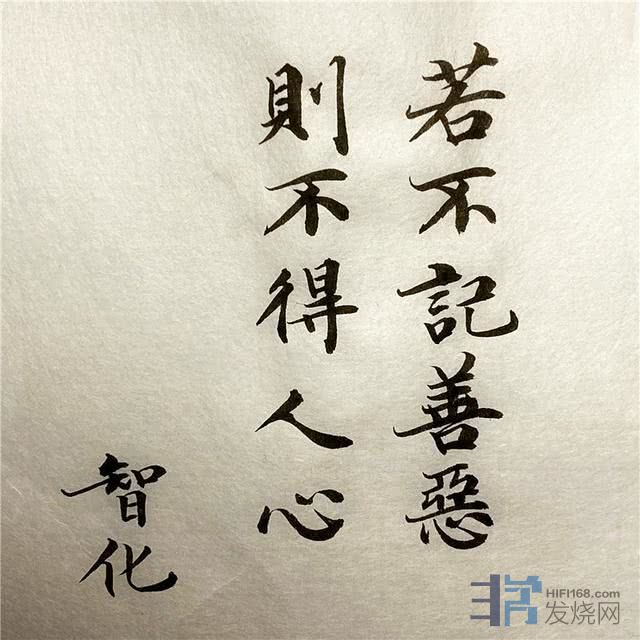 若不記善惡
則不得人心
智化
HIFI168.com
发烧网